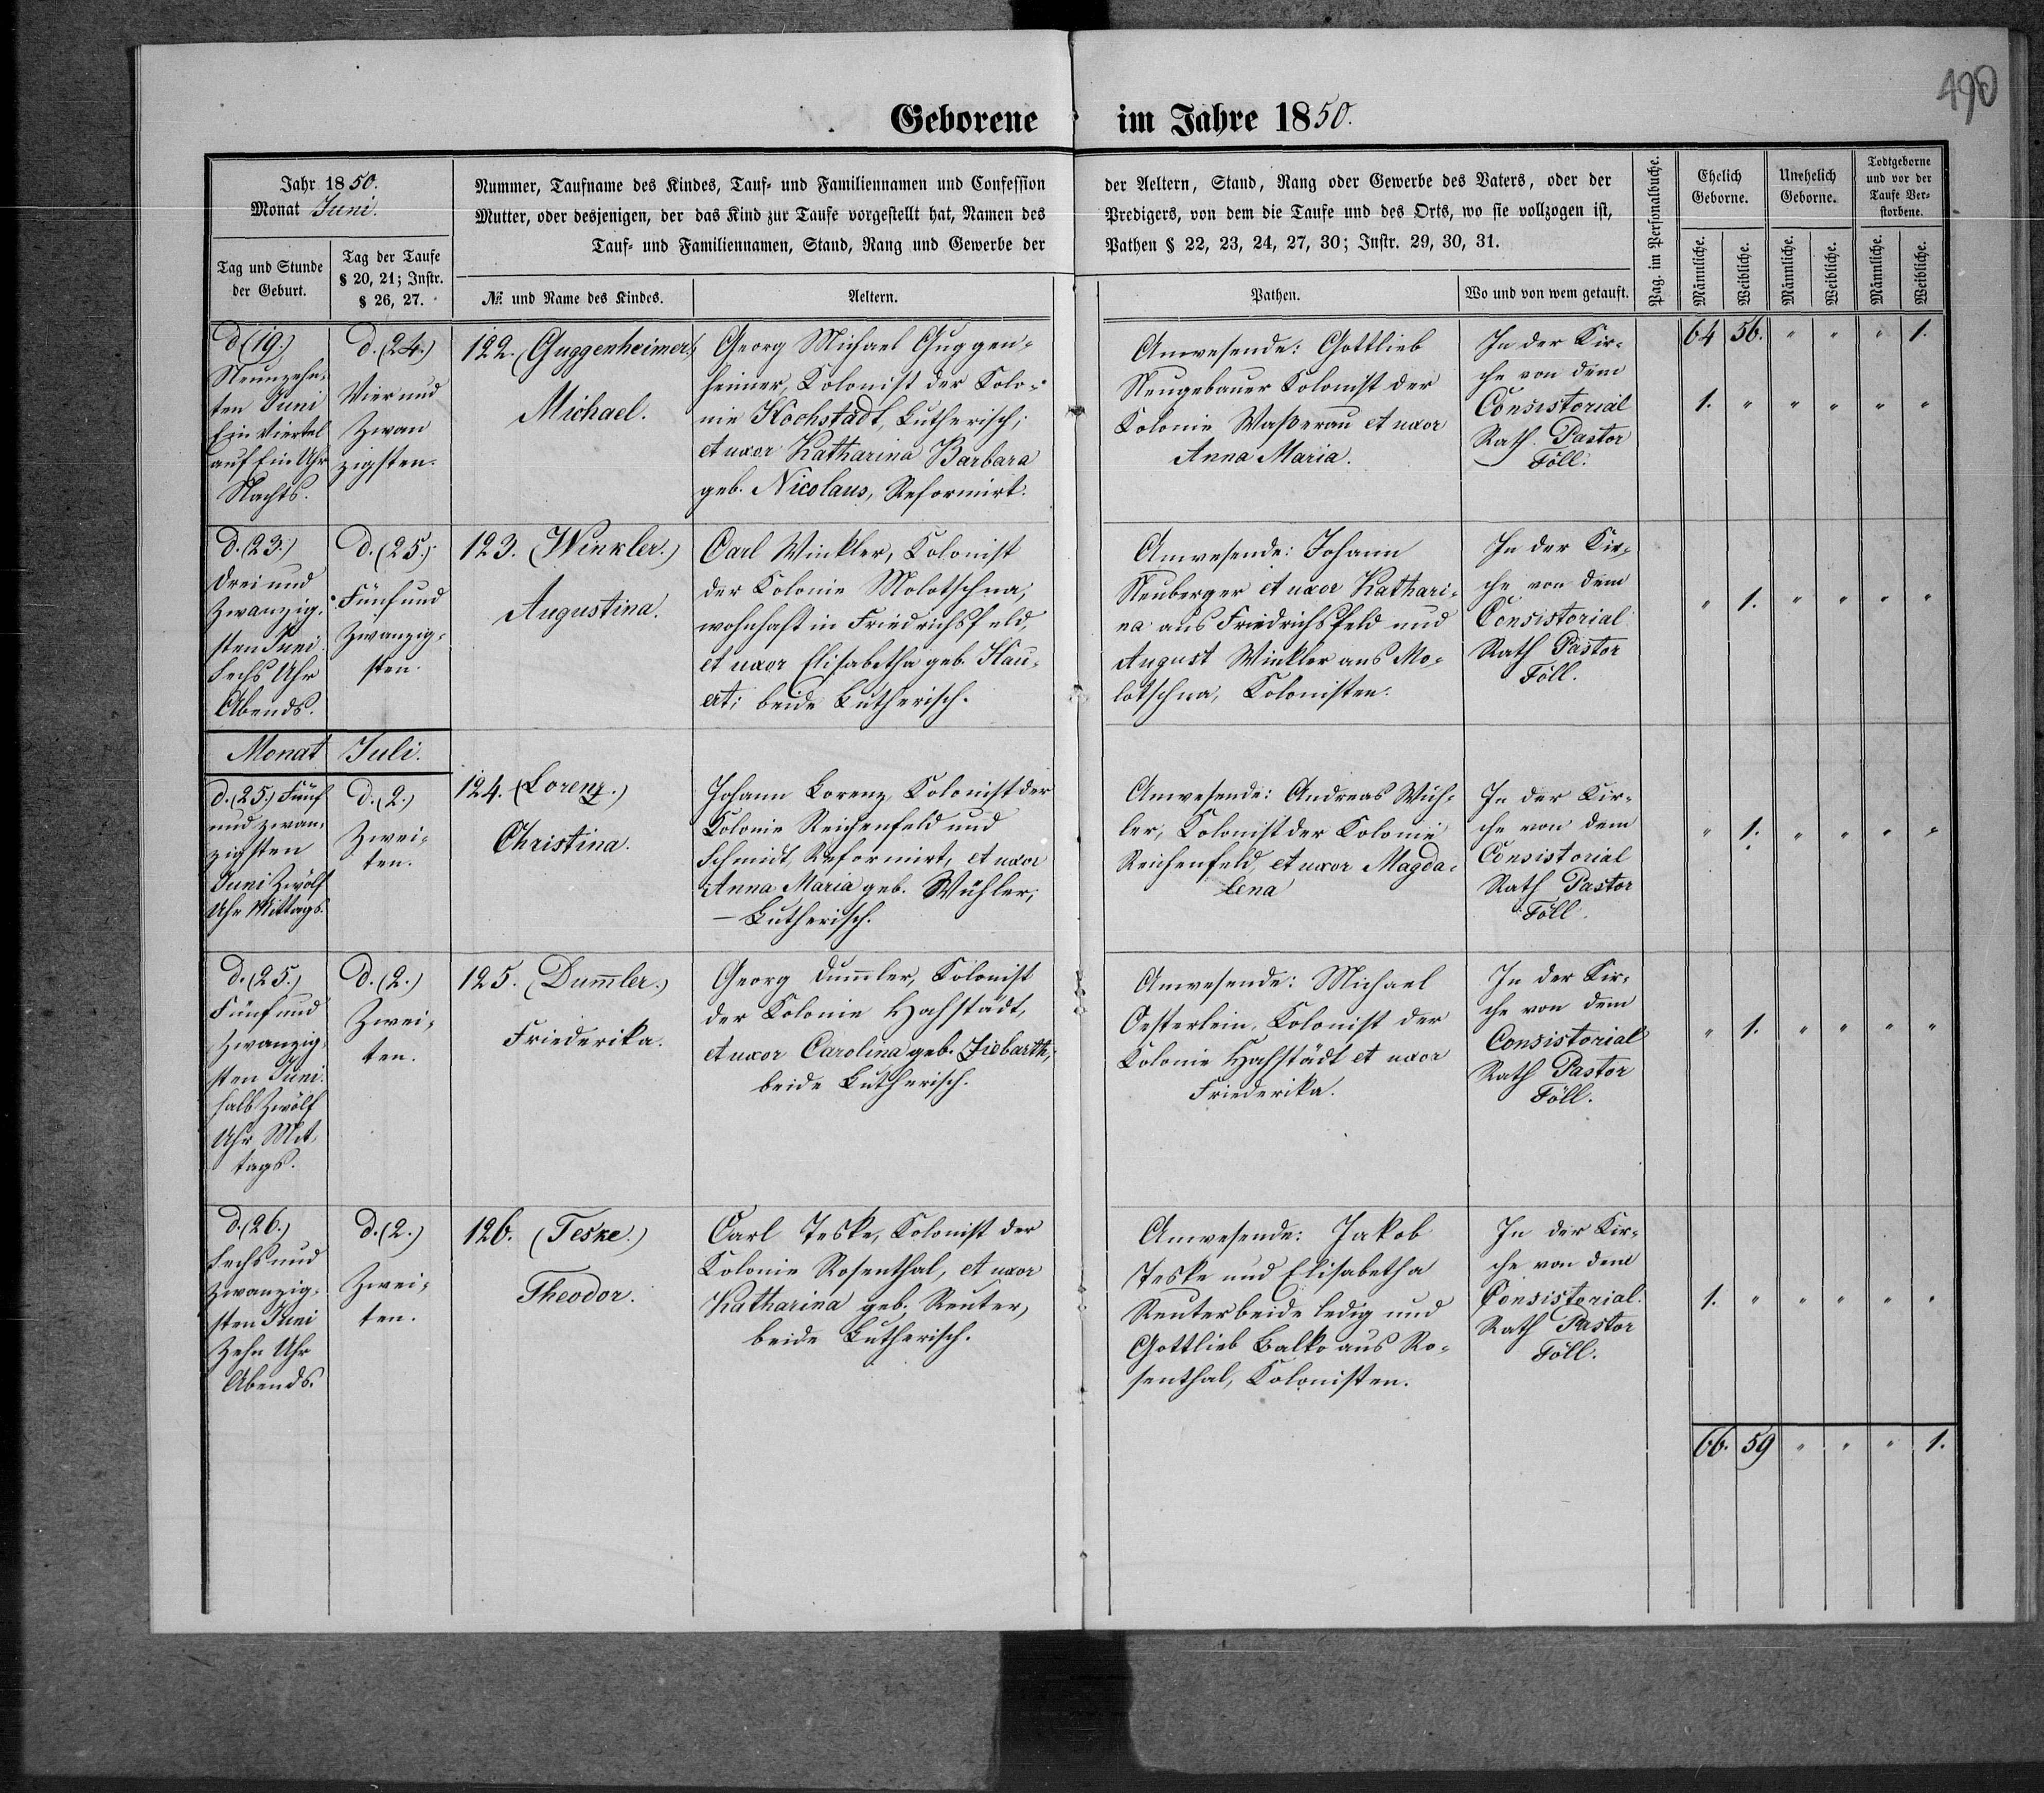 490
Geborene im Jahre 1850.
Jahr 1850.
Monat Juni.
Tag und Stunde
der Geburt.
Tag der Taufe
§ 20, 21; Instr.
§ 26, 27.
Nummer, Taufname des Kindes, Tauf- und Familiennamen und Confession
Mutter, oder desjenigen, der das Kind zur Taufe vorgestellt hat, Namen des
Tauf- und Familiennamen, Stand, Rang und Gewerbe der
№ und Name des Kindes.
Aeltern.
der Aeltern, Stand, Rang oder Gewerbe des Vaters, oder der
Predigers, von dem die Taufe und des Orts, wo sie vollzogen ist,
Pathen § 22, 23, 24, 27, 30; Instr. 29, 30, 31.
Pathen.
Wo und von wem getauft.
Pag. im Personalbuche.
Ehelich
Geborne.
Unehelich
Geborne.
Todtgeborne
und vor der
Taufe Ver-
storbene.
Männliche.
Weibliche.
Männliche.
Weibliche.
Männliche.
Weibliche.
64 56. " " " 1.
d. (19.)
Neunzehn-
ten Juni
Ein Viertel
auf Ein Uhr
Nachts.
d. (24.)
Vier und
Zwan
zigsten.
122. (Guggenheimer.)
Michael.
Georg Michael Guggen-
heimer, Kolonist der Kolo-
nie Hochstädt, Lutherisch;
et uxor Katharina Barbara
geb. Nicolaus, Reformirt.
Anwesende: Gottlieb
Neugebauer Kolonist der
Kolonie Waßerau et uxor
Anna Maria.
In der Kir-
che von dem
Consistorial
Rath Pastor
Föll.
1. " " " " "
d. (23.)
Drei und
Zwanzig-
sten Juni
Sechs Uhr
Abends.
d. (25.)
Fünf und
Zwanzig-
sten.
123. (Winkler.)
Augustina.
Carl Winkler, Kolonist
der Kolonie Molotschna,
wohnhaft in Friedrichsfeld,
et uxor Elisabetha geb. Hau-
ert; beide Lutherisch.
Anwesende: Johann
Neuberger et uxor Kathari-
na aus Friedrichsfeld und
August Winkler aus Mo-
lotschna, Kolonisten.
In der Kir-
che von dem
Consistorial
Rath Pastor
Föll.
" 1. " " " "
Monat Juli.
d. (25.) Fünf
und zwan-
zigsten
Juni Zwölf
Uhr Mittags.
d. (2.)
Zwei-
ten.
124. (Lorenz.)
Christina.
Johann Lorenz, Kolonist der
Kolonie Reichenfeld und
Schmidt, Reformirt, et uxor
Anna Maria geb. Wühler;
– Lutherisch.
Anwesende: Andreas Wüh-
ler, Kolonist der Kolonie
Reichenfeld, et uxor Magda-
lena
In der Kir-
che von dem
Consistorial
Rath Pastor
Föll.
" 1. " " " "
d. (25.)
Fünf und
Zwanzig-
sten Juni
halb Zwölf
Uhr Mit-
tags.
d. (2.)
Zwei-
ten.
125. (Dum̄ler.)
Friederika.
Georg Dum̄ler, Kolonist
der Kolonie Hochstädt,
et uxor Carolina geb. Ziebarth;
beide Lutherisch.
Anwesende: Michael
Oesterlein, Kolonist der
Kolonie Hochstädt et uxor
Friederika.
In der Kir-
che von dem
Consistorial
Rath Pastor
Föll.
" 1. " " " "
d. (26.)
Sechs und
Zwanzig-
sten Juni
Zehn Uhr
Abends.
d. (2.)
Zwei-
ten.
126. (Teske.)
Theodor.
Carl Teske, Kolonist der
Kolonie Rosenthal, et uxor
Katharina geb. Reuter,
beide Lutherisch.
Anwesende: Jakob
Teske und Elisabetha
Reuter beide ledig und
Gottlieb Balko aus Ro-
senthal, Kolonisten.
In der Kir-
che von dem
Consistorial
Rath Pastor
Föll.
1. " " " " "
66. 59 " " " 1.